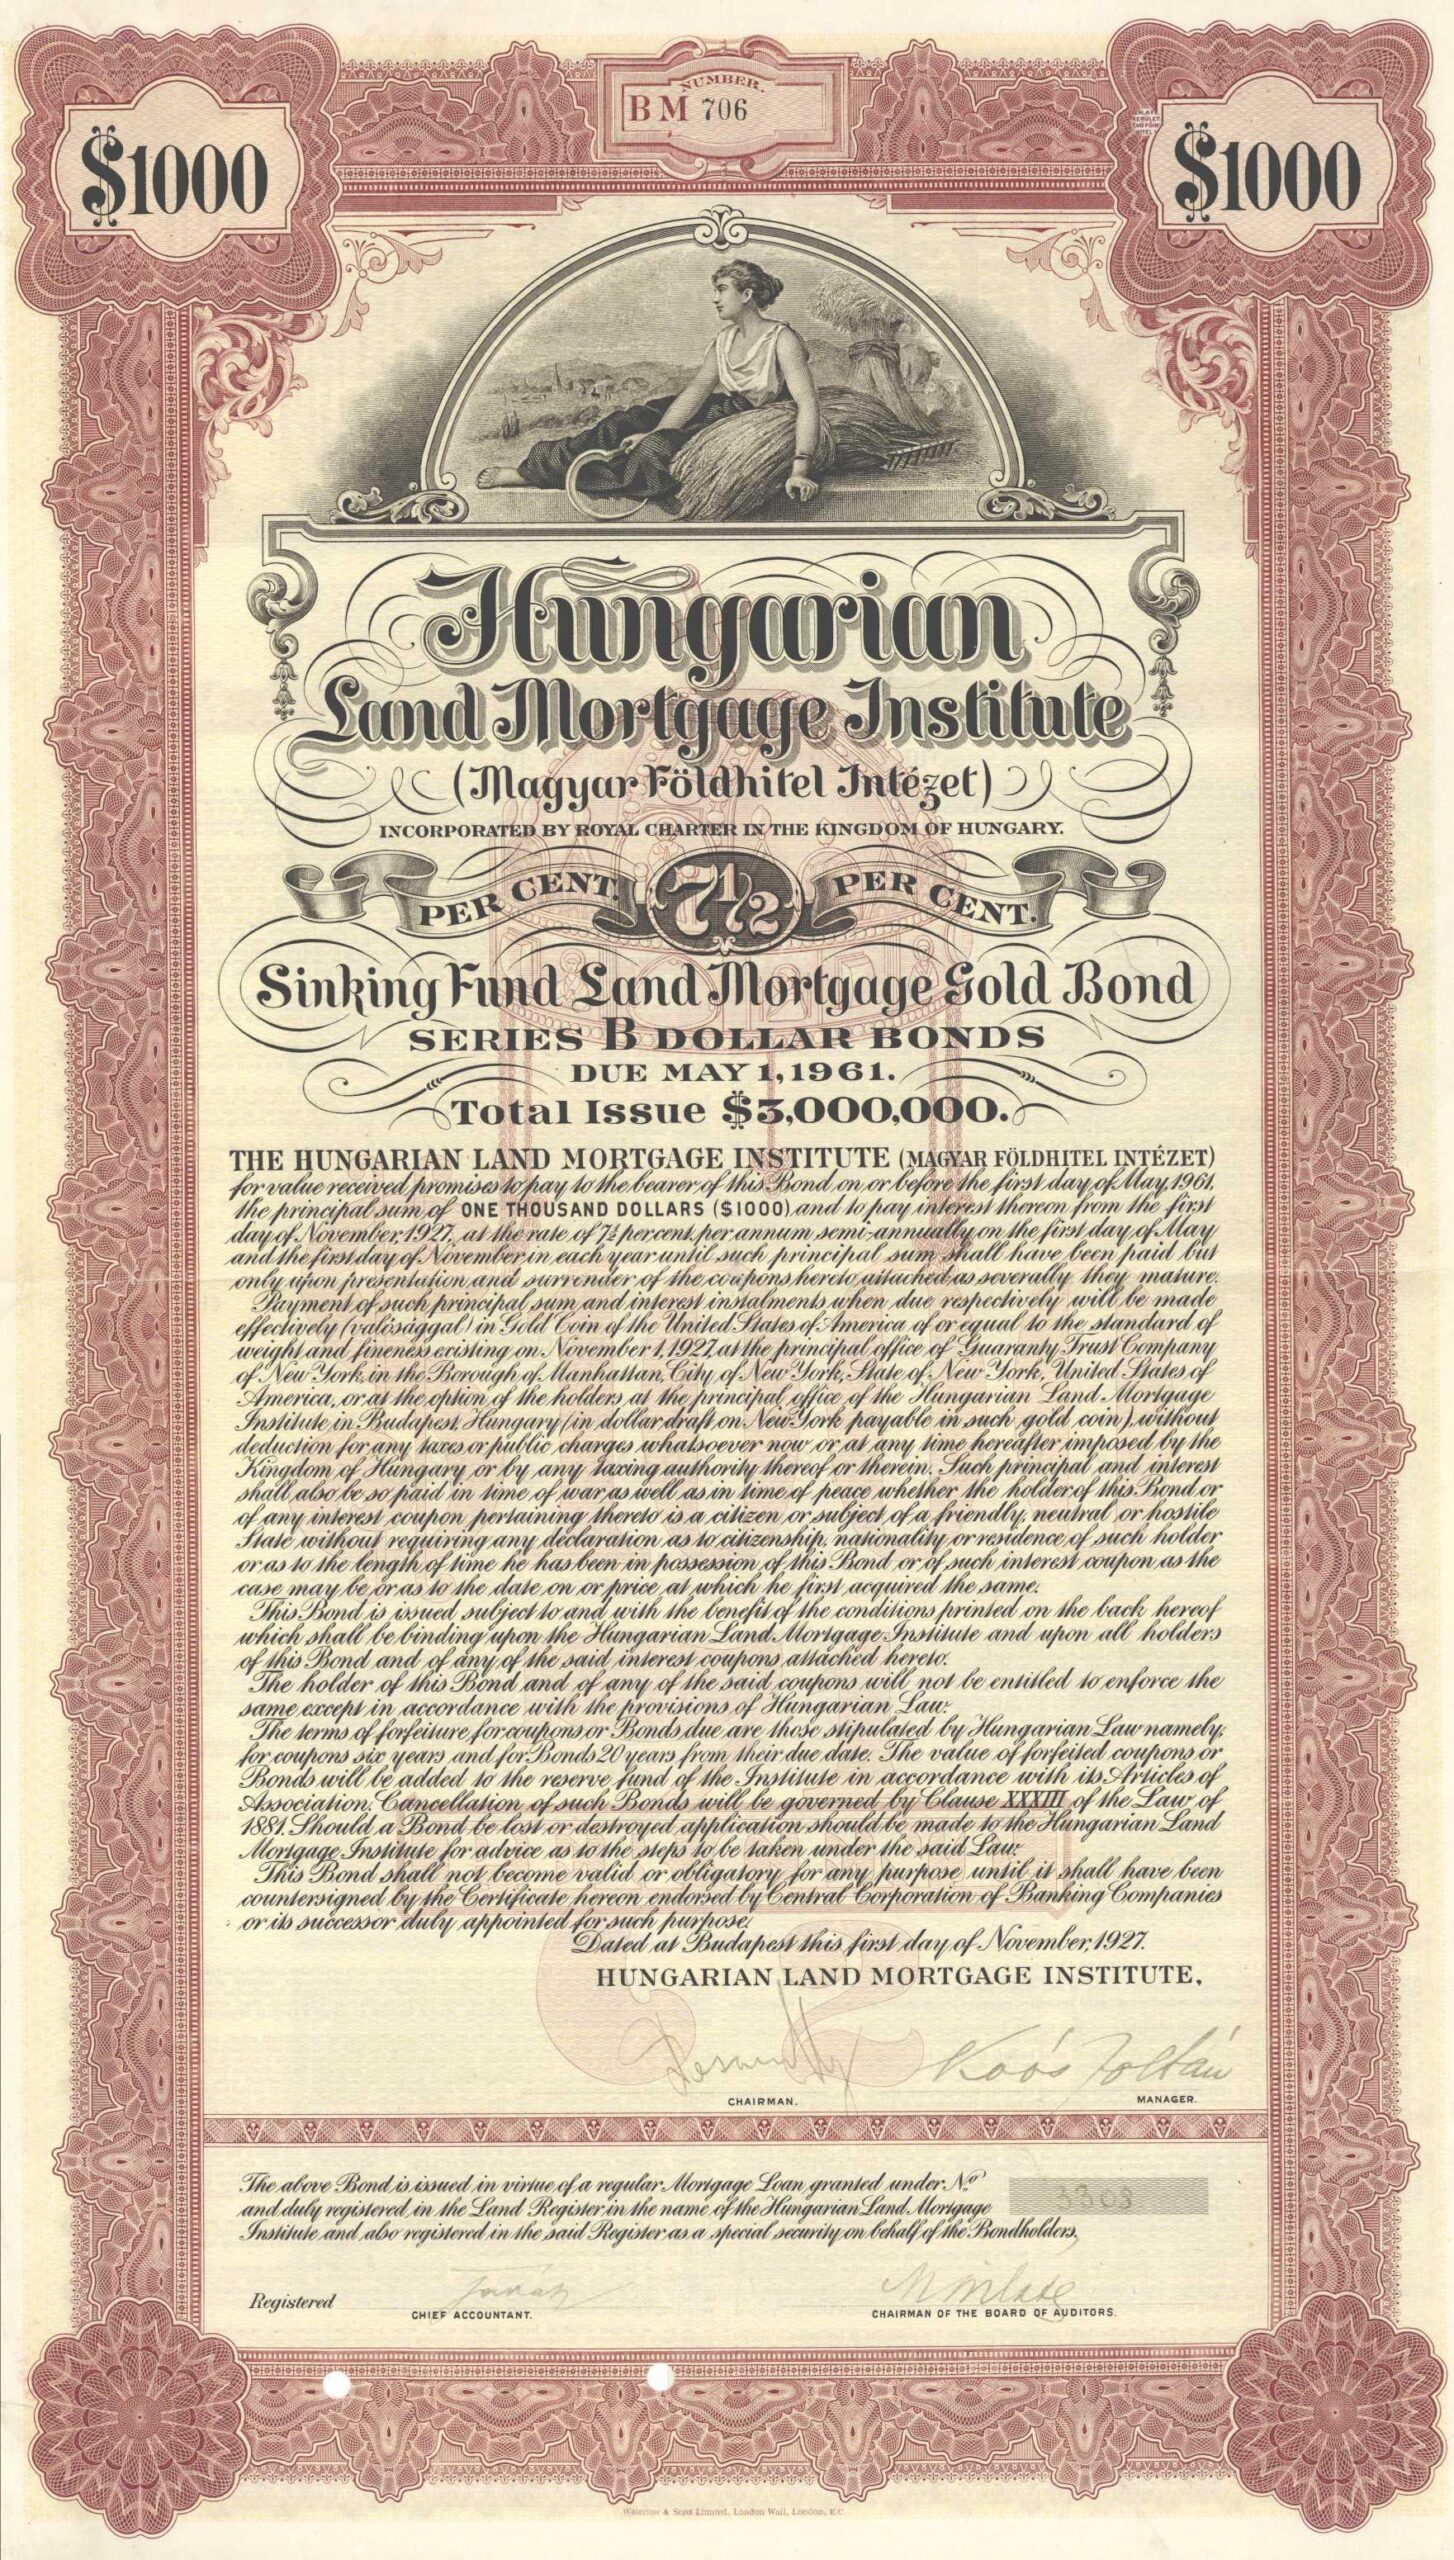 NUMBER.
BM 706
$1000
$1000
Hungarian
Land Mortgage Institute
(Magyar Földhitel Intézet)
INCORPORATED BY ROYAL CHARTER IN THE KINGDOM OF HUNGARY.
PER CENT. 7½ PER CENT.
Sinking Fund Land Mortgage Gold Bond
SERIES B DOLLAR BONDS
DUE MAY 1, 1961.
Total Issue $3,000,000.
THE HUNGARIAN LAND MORTGAGE INSTITUTE (MAGYAR FÖLDHITEL INTÉZET)
for value received promises to pay to the bearer of this Bond on or before the first day of May, 1961,
the principal sum of ONE THOUSAND DOLLARS ($1000) and to pay interest thereon from the first
day of November, 1927, at the rate of 7½ per cent. per annum, semi-annually on the first day of May
and the first day of November in each year until such principal sum shall have been paid but
only upon presentation and surrender of the coupons hereto attached as severally they mature.
Payment of such principal sum and interest instalments when due respectively will be made
effectively (valósággal) in Gold Coin of the United States of America of or equal to the standard of
weight and fineness existing on November 1, 1927, at the principal office of Guaranty Trust Company
of New York, in the Borough of Manhattan, City of New York, State of New York, United States of
America, or at the option of the holders at the principal office of the Hungarian Land Mortgage
Institute in Budapest, Hungary (in dollar draft on New York payable in such gold coin), without
deduction for any taxes or public charges whatsoever now or at any time hereafter imposed by the
Kingdom of Hungary or by any taxing authority thereof or therein. Such principal and interest
shall also be so paid in time of war as well as in time of peace whether the holder of this Bond or
of any interest coupon pertaining thereto is a citizen or subject of a friendly, neutral or hostile
State without requiring any declaration as to citizenship, nationality or residence of such holder
or as to the length of time he has been in possession of this Bond or of such interest coupon as the
case may be or as to the date on or price at which he first acquired the same.
This Bond is issued subject to and with the benefit of the conditions printed on the back hereof
which shall be binding upon the Hungarian Land Mortgage Institute and upon all holders
of this Bond and of any of the said interest coupons attached hereto.
The holder of this Bond and of any of the said coupons will not be entitled to enforce the
same except in accordance with the provisions of Hungarian Law.
The terms of forfeiture for coupons or Bonds due are those stipulated by Hungarian Law namely,
for coupons six years and for Bonds 20 years from their due date. The value of forfeited coupons or
Bonds will be added to the reserve fund of the Institute in accordance with its Articles of
Association. Cancellation of such Bonds will be governed by Clause XXXIII of the Law of
1881. Should a Bond be lost or destroyed application should be made to the Hungarian Land
Mortgage Institute for advice as to the steps to be taken under the said Law.
This Bond shall not become valid or obligatory for any purpose until it shall have been
countersigned by the Certificate hereon endorsed by Central Corporation of Banking Companies
or its successor duly appointed for such purpose.
Dated at Budapest this first day of November, 1927.
HUNGARIAN LAND MORTGAGE INSTITUTE,
Koós Zoltán
CHAIRMAN. MANAGER.
The above Bond is issued in virtue of a regular Mortgage Loan granted under No. 3303
and duly registered in the Land Register in the name of the Hungarian Land Mortgage
Institute and also registered in the said Register as a special security on behalf of the Bondholders.
Registered
CHIEF ACCOUNTANT. CHAIRMAN OF THE BOARD OF AUDITORS.
Waterlow & Sons Limited, London Wall, London, E.C.